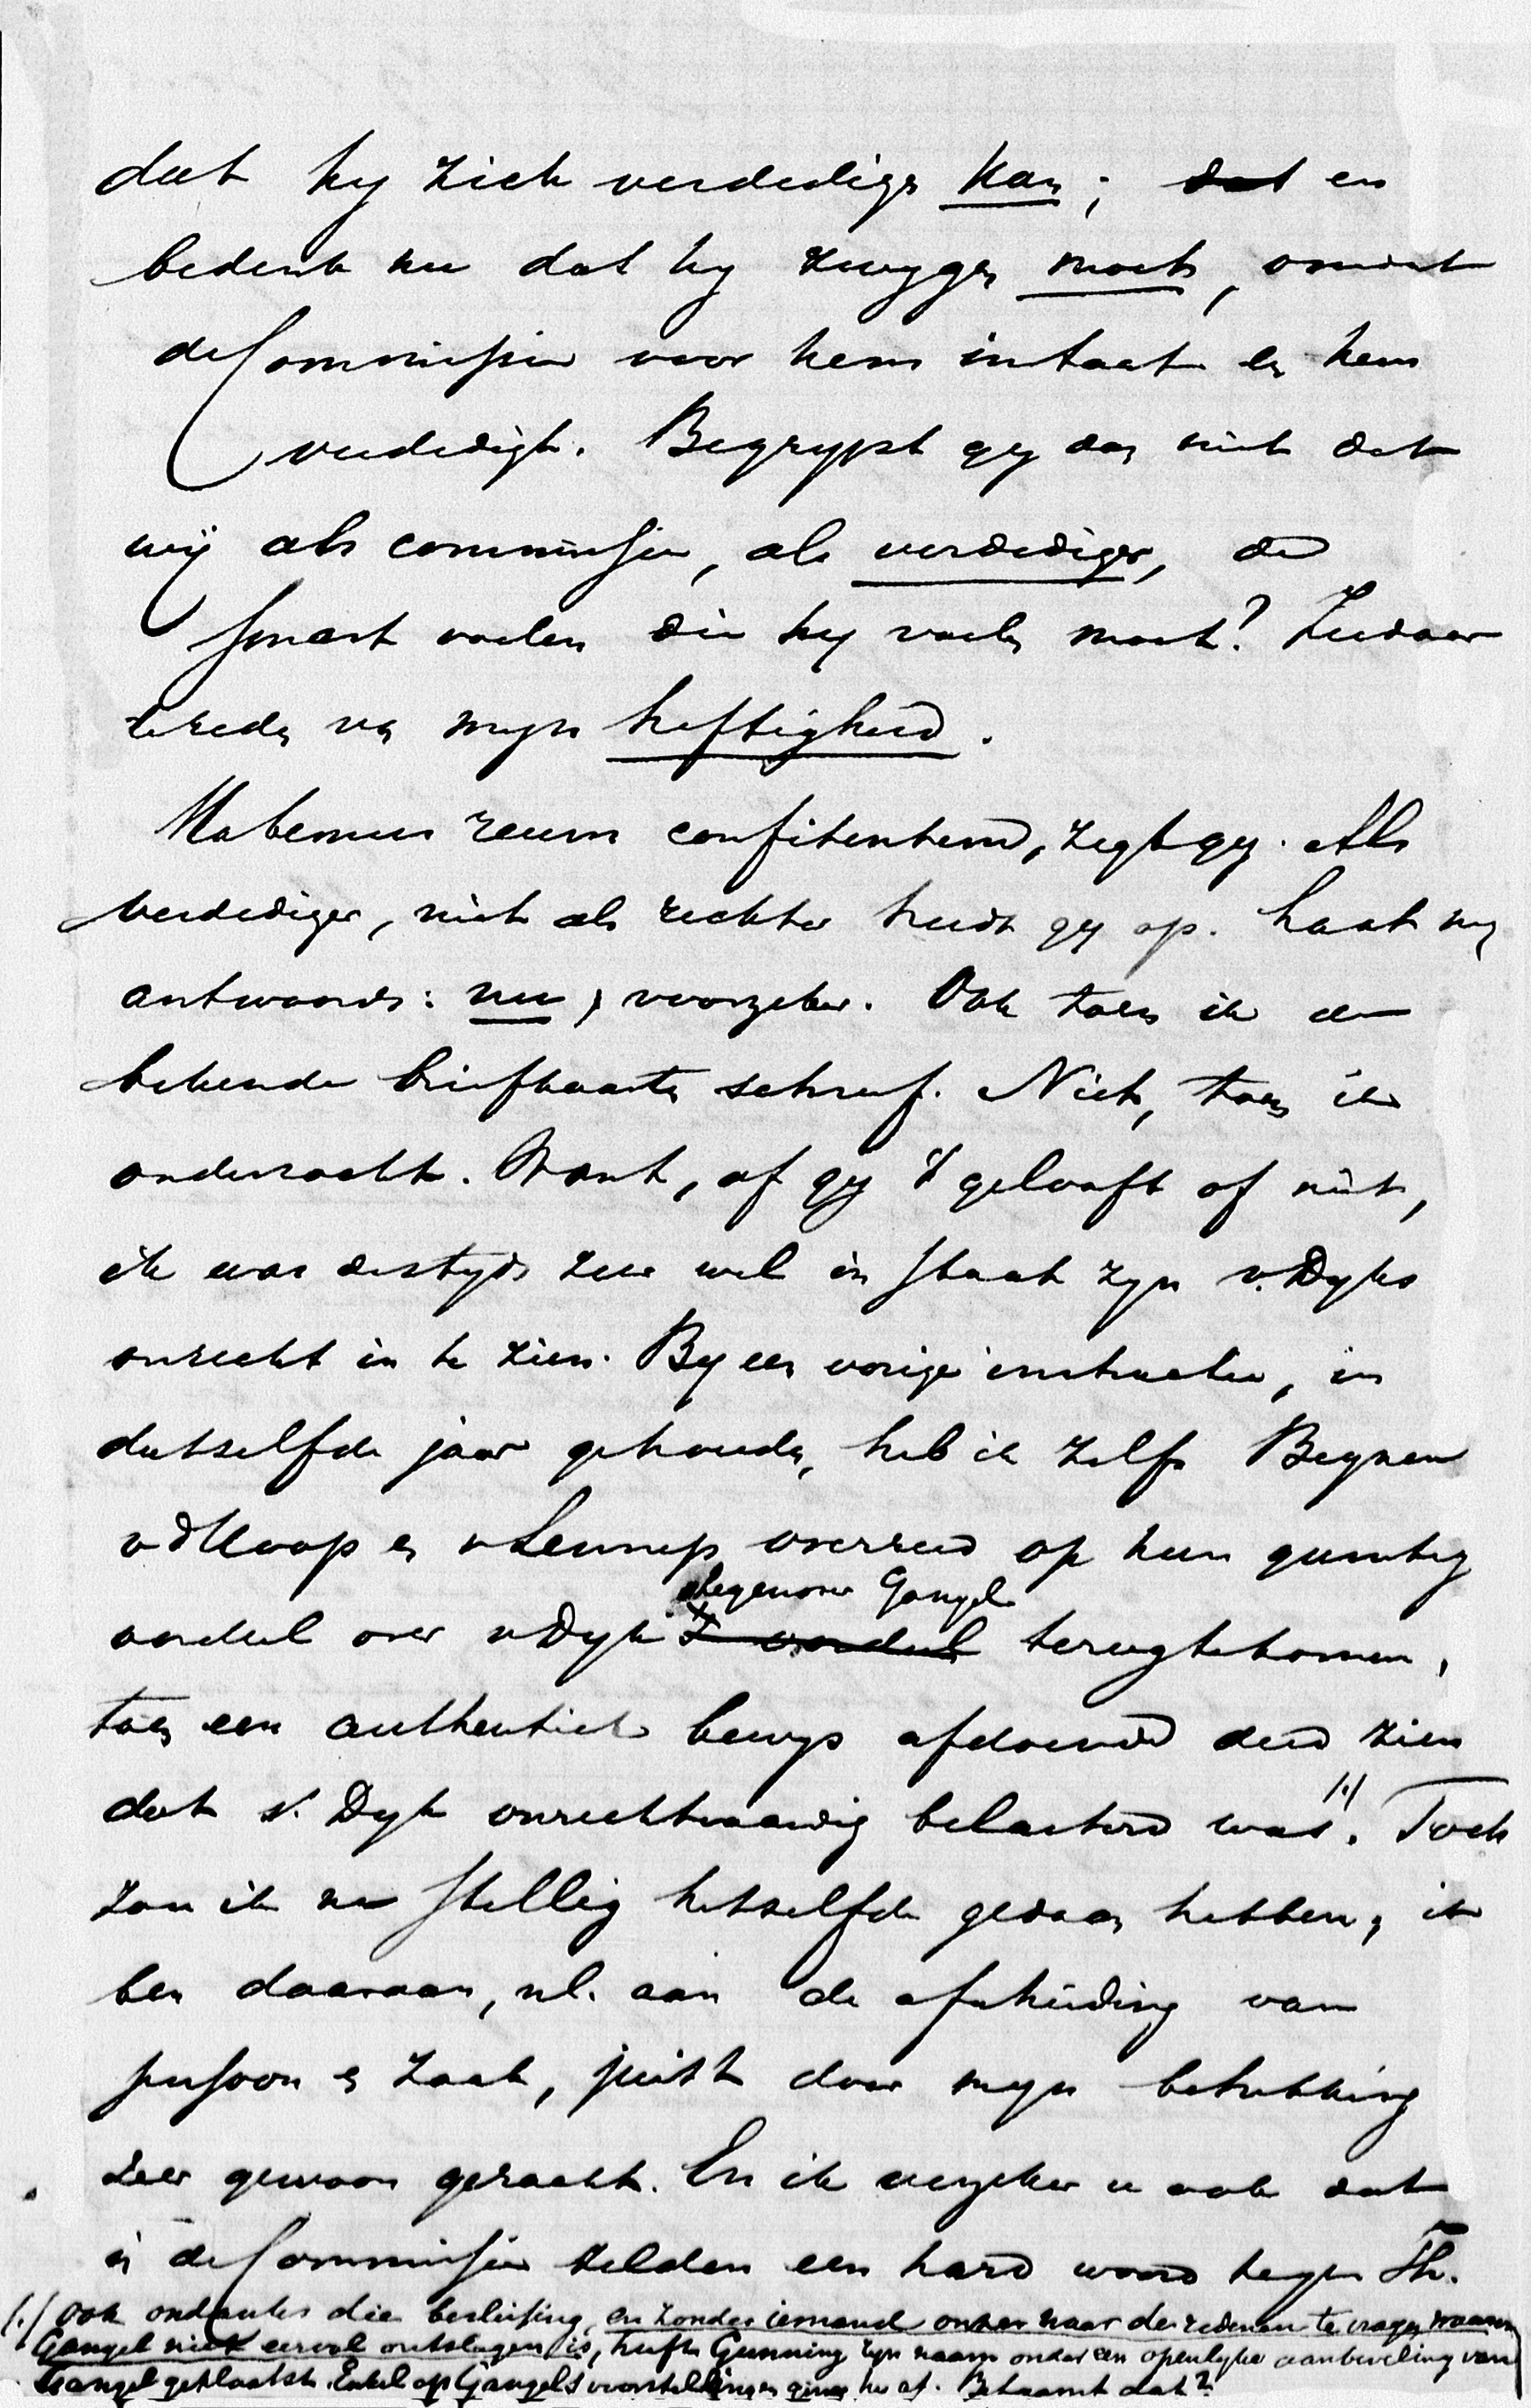 dat hy zich verdedigen kan; dat en
bedenk nu dat hy zwygen moet, omdat
de Commissie voor hem instaat en hem
verdedigt. Begrypt gy dan niet dat
wij als commissie, als verdediger, de
smart voelen die hy voelen moet? Ziedaar
de reden van mijn heftigheid.
Habemus reum confitentem, zegt gy. Als
verdediger, niet als rechter treedt gy op. Laat my
antwoorden: nu, voorzeker. Ook toen ik de
bekende briefkaarten schreef. Niet, toen ik
onderzocht. Want, of gy 't gelooft of niet,
ik was destyds zeer wel in staat zyn v. Dyks
onrecht in te zien. By een vorige instructie, in
datzelfde jaar gehouden, heb ik zelfs Beynen
vd Koop en v Lennep overreed op hun gunstig
oordeel over v Dyk tegenover Gangel terugtekomen,
toen een authentiek bewys afdoend deed zien
dat v. Dyk onrechtvaardig belasterd was (.). Toch
zou ik nu stellig hetzelfde gedaan hebben; ik
ben daaraan, nl. aan de afscheiding van
persoon en zaak, juist door myn betrekking
zeer gewoon geraakt. En ik verzeker u ook dat
in de Commissie zelden een hard woord tegen Th.
(.) Ook ondanks die beslissing, en zonder iemand onzer naar de redenen te vragen waarom
Gangel niet eervol ontslagen is, heeft Gunning zyn naam onder een openlyke aanbeveling van
Gangel geplaatst. Enkel op Gangels voorstellingen ging he af. Betaamt dat?